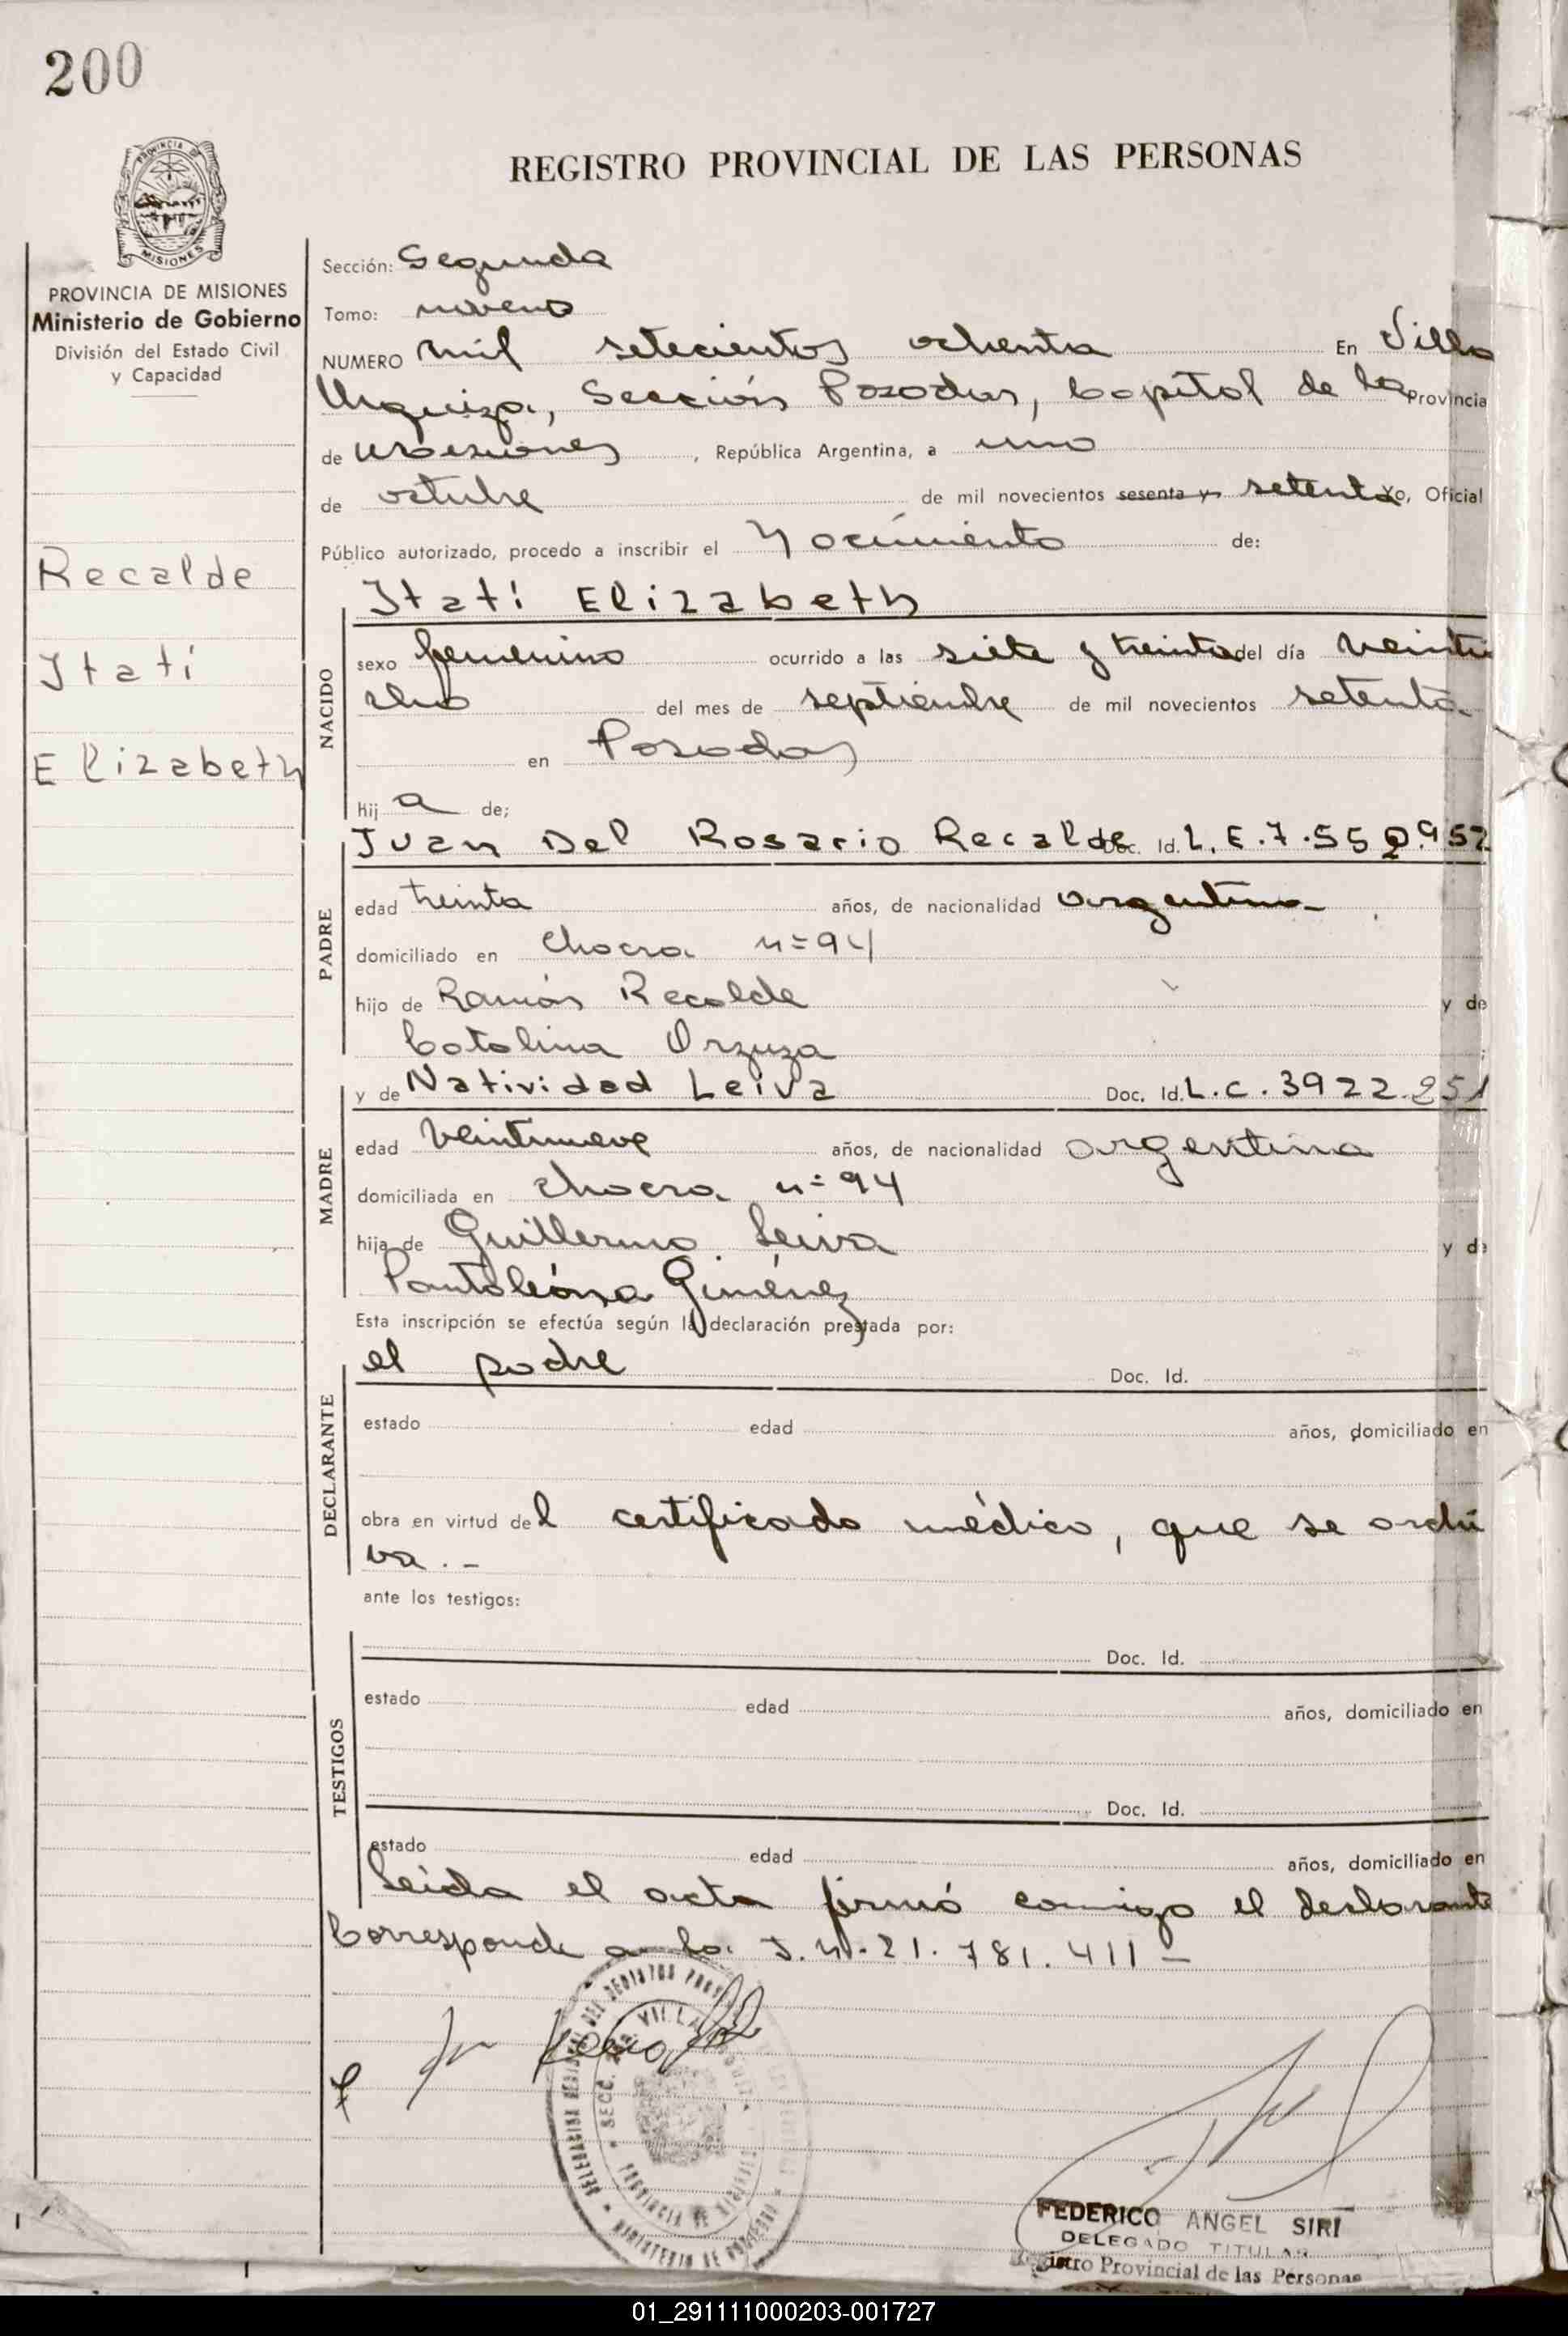 200
PROVINCIA
MISIONES
REGISTRO PROVINCIAL DE LAS PERSONAS
PROVINCIA DE MISIONES
Ministerio de Gobierno
División del Estado Civil
y Capacidad
Recalde
Itatí
Elizabeth
Sección: Segunda
Tomo: noveno
NUMERO mil setecientos ochenta En Villa
Urquiza, Sección Posadas, Capital de la Provincia
de Misiones, República Argentina, a uno
de octubre de mil novecientos sesenta y setenta Yo, Oficial
Público autorizado, procedo a inscribir el Nacimiento de:
NACIDO
Itatí Elizabeth
sexo femenino ocurrido a las siete y treinta del día veinti
ocho del mes de septiembre de mil novecientos setenta
en Posadas
hij a de;
PADRE
Juan Del Rosario Recalde Doc. Id. L.E.7.550.952
edad treinta años, de nacionalidad argentina
domiciliado en chacra n=94
hijo de Ramón Recalde y de
Catalina Orzuza
MADRE
y de Natividad Leiva Doc. Id. L.C.3922.251
edad veintinueve años, de nacionalidad argentina
domiciliada en chacra n=94
hija de Guillermo Leiva y de
Pantaleóna Giménez
Esta inscripción se efectúa según la declaración prestada por:
DECLARANTE
el padre Doc. Id.
estado edad años, domiciliado en
obra en virtud del certificado médico, que se archi
va.-
ante los testigos:
TESTIGOS
Doc. Id.
estado edad años, domiciliado en
Doc. Id.
estado edad años, domiciliado en
Leída el acta firmó conmigo el declarante
Corresponde a la I.N.21.781.411-
FEDERICO ANGEL SIRI
DELEGADO TITULAR
Registro Provincial de las Personas
01_291111000203-001727